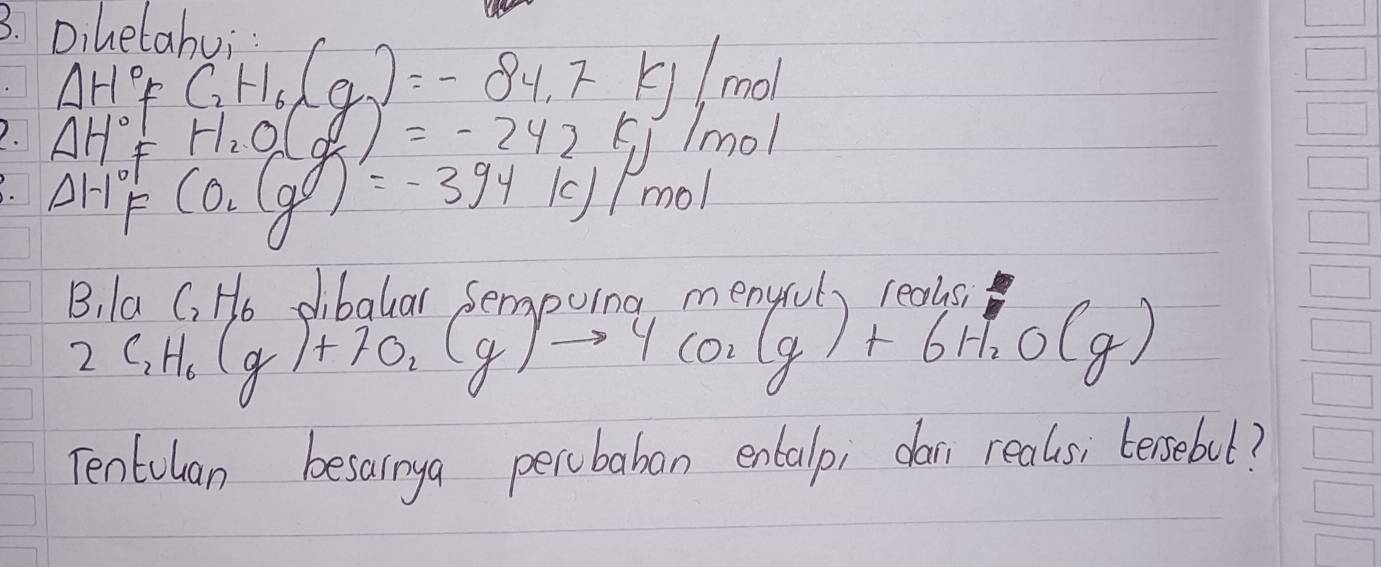 3. Diketahui:
1. ΔH°F C₂H₆(g) = - 84,7 kJ/mol
2. ΔH°F H₂O(g) = - 242 kJ/mol
3. ΔH°F CO₂(g) = - 394 kJ/mol
Bila C₂H₆ dibakar sempurna, menyrut) reaksi:
2 C₂H₆ (g) + 7O₂ (g) → 4 CO₂ (g) + 6H₂O(g)
Tentukan besarnya perubahan entalpi dari reaksi tersebut?